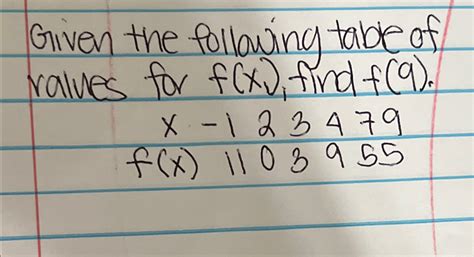 Given the following table of
values for f(x), find f(9).
x -1 2 3 4 7 9
f(x) 11 0 3 9 5 5